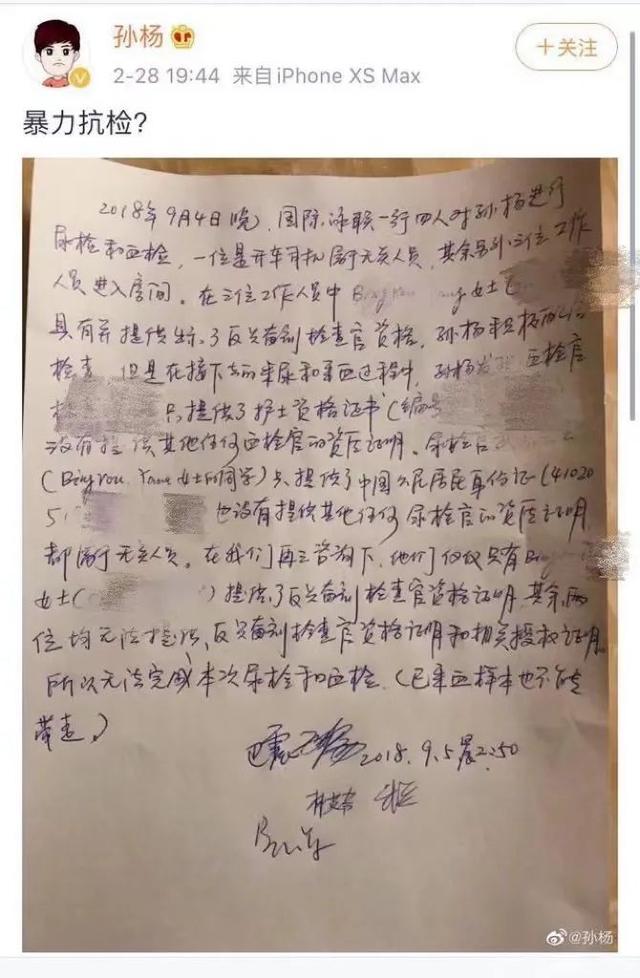 孙杨
+关注
2-28 19:44 来自iPhone XS Max
暴力抗检?
2018年9月4日晚,国际泳联一行四人对孙杨进行
尿检和血检,一位是开车司机属于无关人员,其余另外三位工作
人员进入房间。在三位工作人员中 女士(
具有并提供出示了反兴奋剂检查官资格,孙杨积极配合
检查 但是在接下去的采尿和采血过程中,孙杨 血检官
只提供了护士资格证书(编号
没有提供其他任何血检官的资质证明。尿检官
( 女士的同学)只提供了中国公民居民身份证(41020
51 也没有提供其他任何尿检官的资质证明
都属于无关人员。在我们再三咨询下,他们仅仅只有
女士( )提供了反兴奋剂检查官资格证明,其余两
位均无法提供反兴奋剂检查官资格证明和相关授权证明,
所以无法完成本次尿检和血检.(已采血样本也不能
带走.)
2018.9.5晨2:50
@孙杨